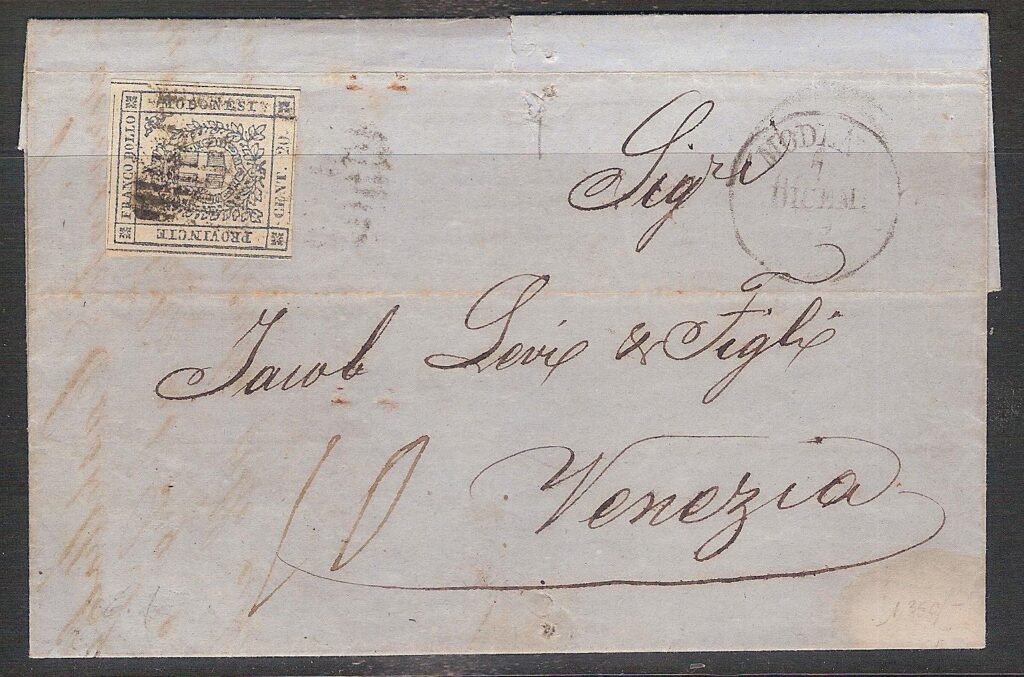 MODONESI
FRANCO BOLLO
CENT. 20
PROVINCIE
Sigri
MODENA
7
DICEM.
Jacob Levi & Figli
10
Venezia